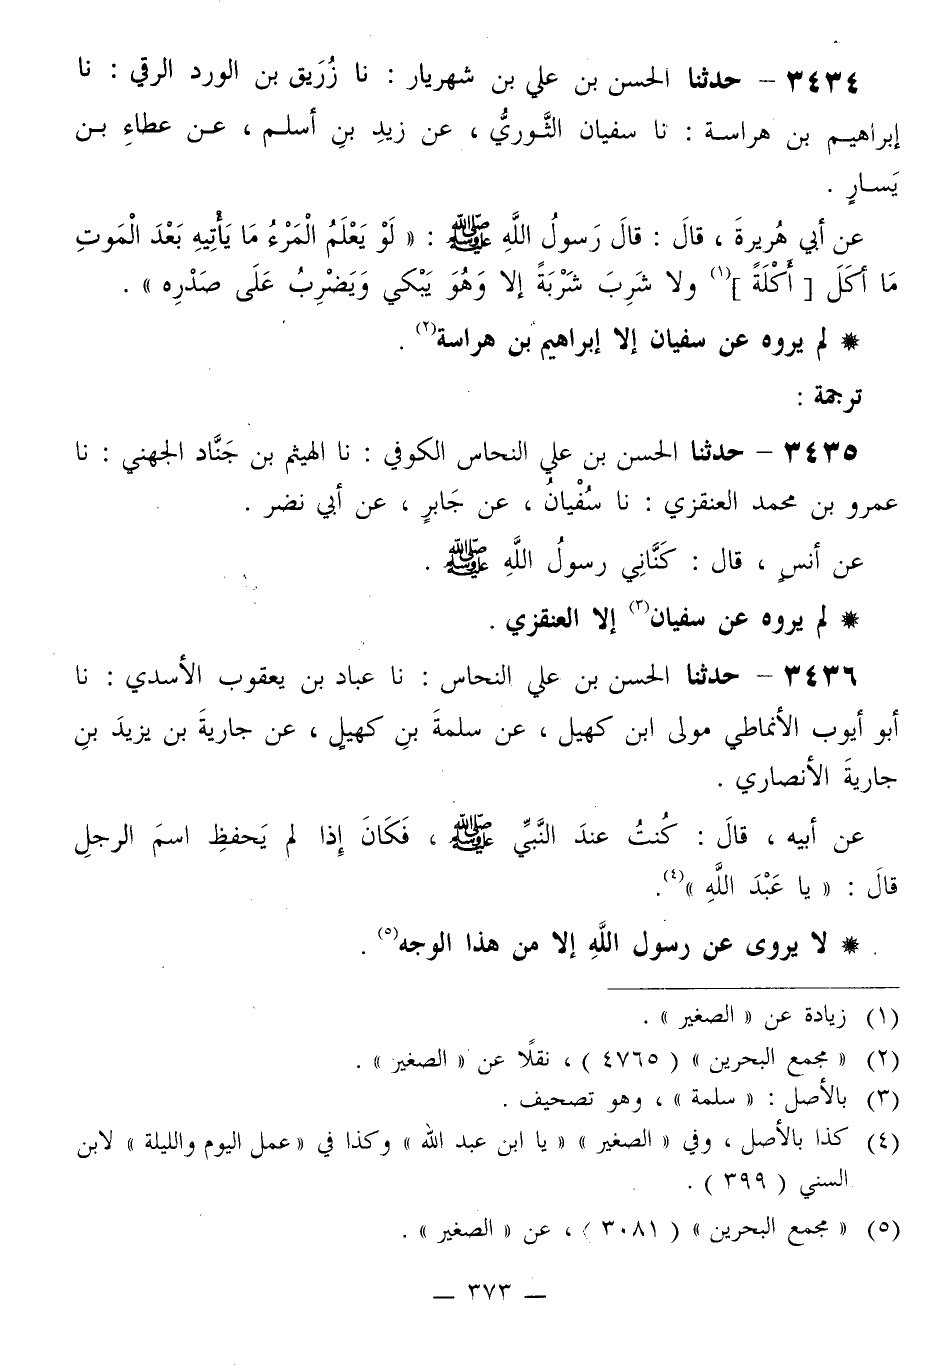 ٣٤٣٤ – حدثنا الحسن بن علي بن شهريار : نا زُرَيق بن الورد الرقي : نا
إبراهيم بن هراسة : نا سفيان الثَّوريُّ ، عن زيدِ بنِ أسلم ، عن عطاءِ بن
يَسارٍ .
عن أبي هُريرةَ ، قالَ : قالَ رَسولُ اللَّهِ ﷺ : « لَوْ يَعْلَمُ الْمَرْءُ مَا يَأْتِيهِ بَعْدَ الْمَوتِ
مَا أكَلَ [ أَكْلَةً ](١) ولا شَرِبَ شَرْبَةً إلا وَهُوَ يَبْكي وَيَضْرِبُ عَلَى صَدْرِه » .
* لم يروه عن سفيان إلا إبراهيم بن هراسة(٢) .
ترجمة :
٣٤٣٥ – حدثنا الحسن بن علي النحاس الكوفي : نا الهيثم بن جَنَّاد الجهني : نا
عمرو بن محمد العنقزي : نا سُفْيانُ ، عن جَابرٍ ، عن أبي نضر .
عن أنسٍ ، قال : كَنَّانِي رسولُ اللَّهِ ﷺ .
* لم يروه عن سفيان(٣) إلا العنقزي .
٣٤٣٦ – حدثنا الحسن بن علي النحاس : نا عباد بن يعقوب الأسدي : نا
أبو أيوب الأنماطي مولى ابن كهيل ، عن سلمةَ بنِ كهيلٍ ، عن جاريةَ بن يزيدَ بنِ
جاريةَ الأنصاري .
عن أبيه ، قالَ : كُنتُ عندَ النَّبيِّ ﷺ ، فَكَانَ إذا لم يَحفظِ اسمَ الرجلِ
قالَ : « يا عَبْدَ اللَّهِ »(٤).
* لا يروى عن رسول اللَّهِ إلا من هذا الوجه(٥) .
(١) زيادة عن « الصغير » .
(٢) « مجمع البحرين » ( ٤٧٦٥ ) ، نقلًا عن « الصغير » .
(٣) بالأصل : « سلمة » ، وهو تصحيف .
(٤) كذا بالأصل ، وفي « الصغير » « يا ابن عبد الله » وكذا في « عمل اليوم والليلة » لابن
السني ( ٣٩٩ ) .
(٥) « مجمع البحرين » ( ٣٠٨١ ) ، عن « الصغير » .
— ٣٧٣ —